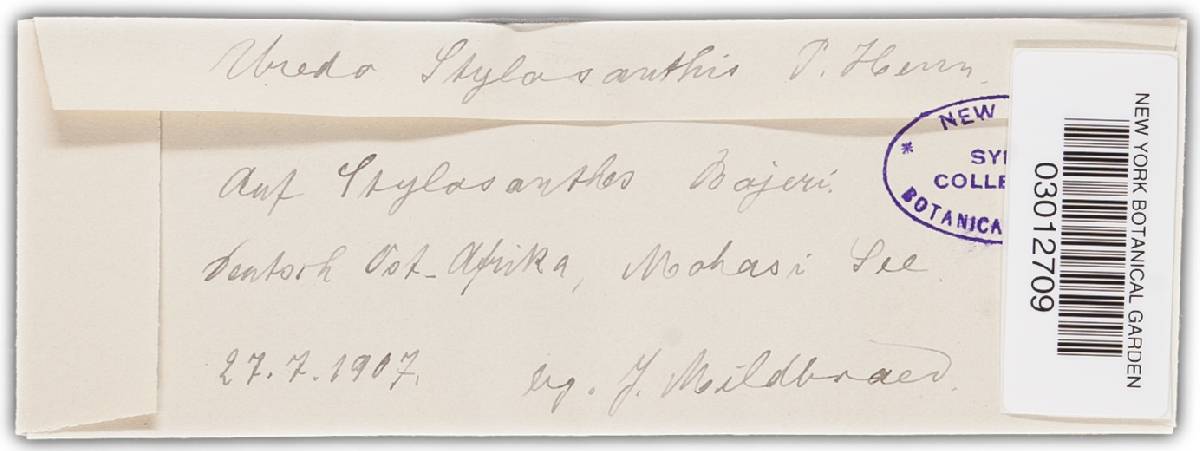 Uredo Stylosanthis P. Henn.
Auf Stylosanthes Bojeri.
Deutsch Ost-Afrika, Mohasi See.
27.7.1907. leg. J. Mildbraed.
NEW
SY
COLLE
BOTANICA
NEW YORK BOTANICAL GARDEN
03012709